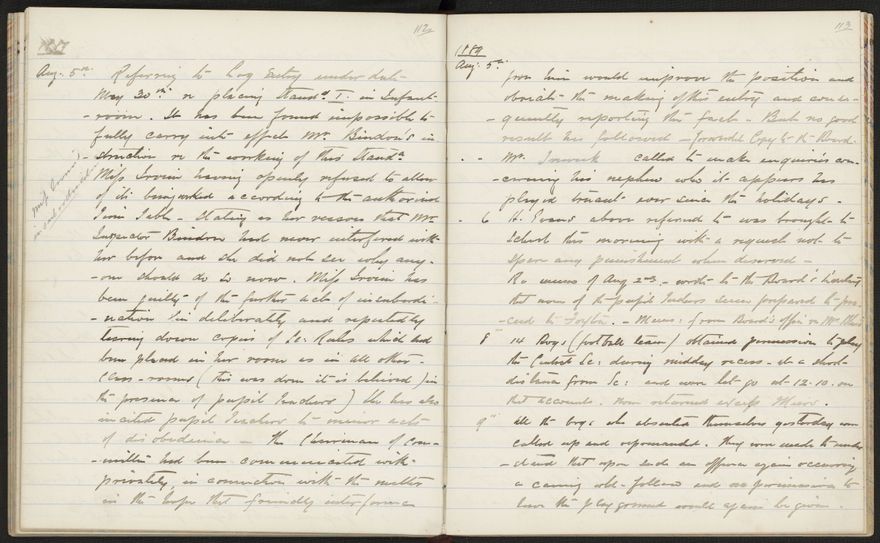 112
1889
Aug. 5th Referring to Log Entry under date
May 30th re placing Standd I. in Infant
- room. It has been found impossible to
fully carry into effect Mr. Bindon's in
- struction re the working of this Standd.
Miss Irvin having openly refused to allow
of its being worked according to the authorised
Time Table - stating as her reason that Mr.
Inspector Bindon had never interfered with
her before and she did not see why any-
- one should do so now. Miss Irvin has
been guilty of the further acts of insubordi-
- nation in deliberately and repeatedly
tearing down copies of Sc: Rules which had
been placed in her room as in all other
class-rooms (this was done it is believed) in
the presence of pupil teachers) She has also
incited pupil teachers to minor acts
of disobedience - the Chairman of Com-
- mittee had been communicated with
privately, in connection with the matter
in the hope that friendly interference
Miss Irvin's
insubordination
113
1889
Aug. 5th
from him would improve the position and
obviate the making of this entry and conse-
- quently reporting the fact. But no good
result has followed - forwarded Copy to the Board.
Mr. called to make enquiries con-
- cerning his nephew who it appears has
played truant ever since the holidays.
6 H. Evans above referred to was brought to
School this morning with a request not to
spare any punishment when deserved -
Re memo of Aug 2nd - wrote to the Board
that none of the pupil teachers were prepared to pro-
- ceed to - Memo: from Board's office re Mr.
8" 14 Boys (football team) obtained permission to play
the Sc: during midday recess - at a short
distance from Sc: and were let go at 12.10. on
that account. None returned except Moore.
9" All the boys who absented themselves yesterday were
called up and reprimanded. They were made to under
- stand that upon such an offence again occurring
a caning wld. follow and no permission to
leave the play ground would again be given.